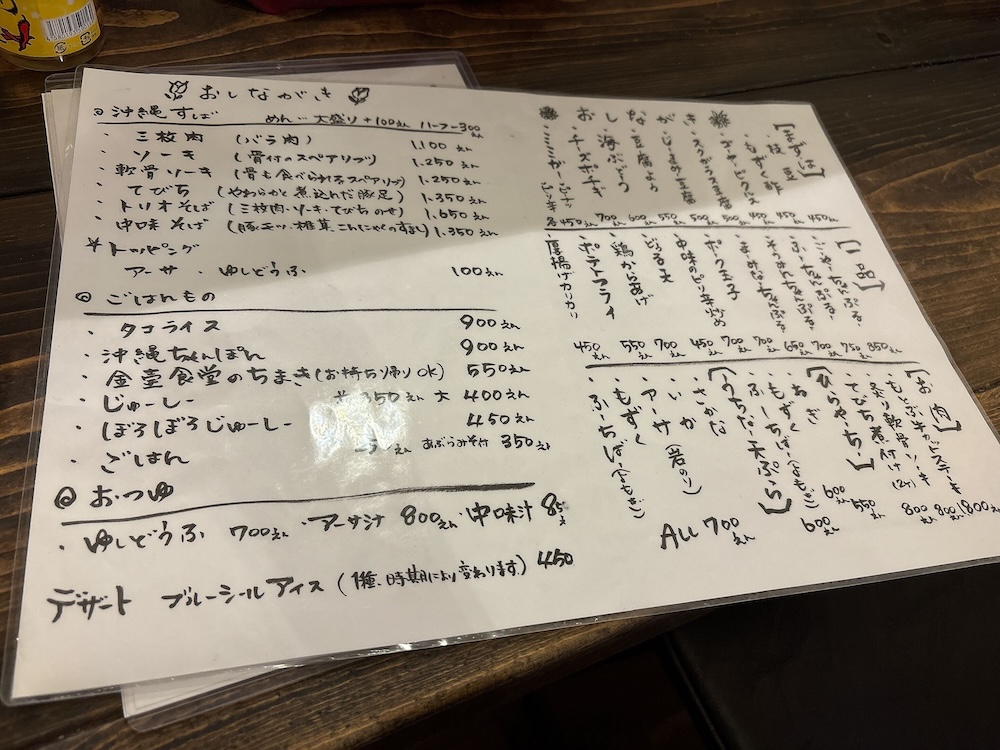 おしながき
◎沖縄すば めん…大盛り+100えん ハーフ-300えん
・三枚肉 (バラ肉) 1,100えん
・ソーキ (骨付のスペアリブ) 1.250えん
・軟骨ソーキ (骨も食べられるスペアリブ) 1.250えん
・てびち (やわらかく煮込んだ豚足) 1.350えん
・トリオそば (三枚肉・ソーキ・てびちのせ) 1.650えん
・中味そば (豚モツ・椎茸・こんにゃくのすまし) 1.350えん
*トッピング
アーサ・ゆしどうふ 100えん
◎ごはんもの
・タコライス 900えん
・沖縄ちゃんぽん 900えん
・金壺食堂のちまき(お持ち帰りOK) 550えん
・じゅーしー 350えん 大 400えん
・ぼろぼろじゅーしー 450えん
・ごはん えん あぶらみそ付 350えん
◎おつゆ
・ゆしどうふ 700えん・アーサ汁 800えん・中味汁
デザート ブルーシールアイス(1種、時期により変わります) 450
おしながき
[まずは]
・もずく酢 450えん
・スヮ
・じーまーみ豆腐
・豆腐よう
・海ぶどう
・チーズ
・ミミガー
[一品]
・ごーやーちゃんぷるー 850えん
・ふーちゃんぷるー 750えん
・そうめんちゃんぷるー 700えん
・まーみなーちゃんぷるー 650えん
・ポーク玉子
・中味のピリ辛炒め
・どぅる天
・鶏から揚げ
・ポテトフライ 550えん
・厚揚げカリカリ 450えん
[お肉]
・もとぶ牛ステーキ 1800えん
・炙り軟骨ソーキ 800えん
・てびち煮付け(2ケ) 800えん
[ひらやーちー]
・ねぎ 550えん
・もずく 600えん
・ふーちばー(よもぎ) 600えん
[うちなー天ぷら]
・さかな
・いか
・アーサ(岩のり)
・もずく
・ふーちばー(よもぎ)
ALL 700えん